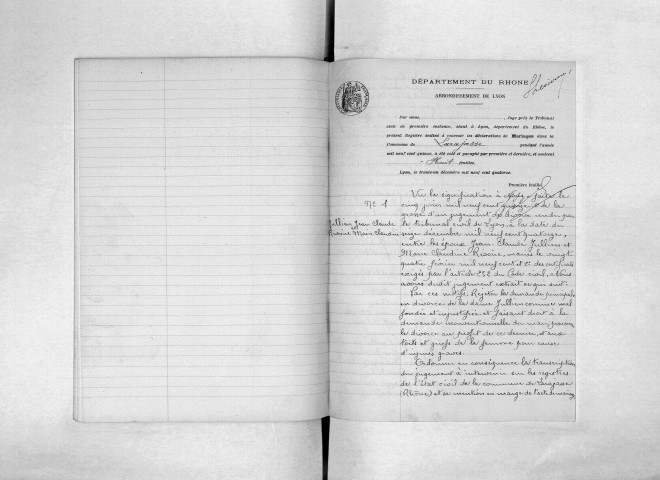 DÉPARTEMENT DU RHONE
ARRONDISSEMENT DE LYON
Par nous, , Juge près le Tribunal
civil de première instance, séant à Lyon, département du Rhône, le
présent Registre destiné à recevoir les déclarations de Mariages dans la
Commune de Larajasse pendant l'année
mil neuf cent quinze, a été coté et paraphé par première et dernière, et contient
Huit feuilles.
Lyon, le trente-un décembre mil neuf cent quatorze.
Première feuille
N° 1
Jullien Jean Claude
Marie Claudine
Vu la signification à nous faite le
cinq juin mil neuf cent quinze, de la
grosse d'un jugement de divorce rendu par
le tribunal civil de Lyon, à la date du
seize décembre mil neuf cent quatorze,
entre les époux Jean Claude Jullien et
Marie Claudine, mariés le vingt
quatre février mil neuf cent et des certificats
exigés par l'article 252 du Code civil, Nous
avons dudit jugement extrait ce qui suit:
Par ces motifs, Rejette la demande principale
en divorce de la dame Jullien comme mal
fondée et injustifiée et faisant droit à la
demande reconventionnelle du mari, prononce
le divorce au profit de ce dernier, et aux
torts et griefs de la femme pour cause
d'injures graves.
Ordonne en conséquence la transcription
du jugement à intervenir sur les registres
de l'Etat civil de la commune de Larajasse
(Rhône) et sa mention en marge de l'acte de mariage